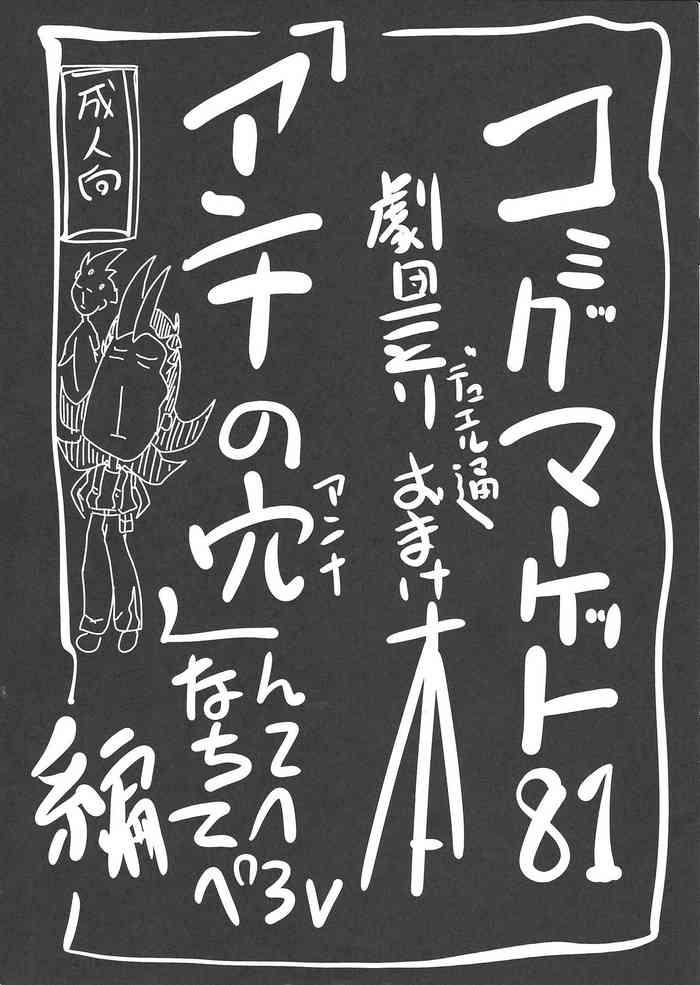 コミグマーゲット81
デュエル通
劇団ニとり おまけ本
「アンナの穴」
アンナ
なんて
ちてへぺろ
編
成人向